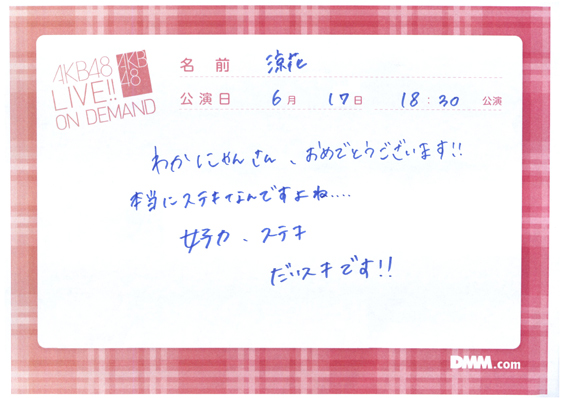 AKB48
LIVE!!
ON DEMAND
AKB
48
名前 涼花
公演日 6月 17日 18:30 公演
わかにゃんさん、おめでとうございます!!
本当にステキなんですよね....
、ステキ
だいスキです!!
DMM.com